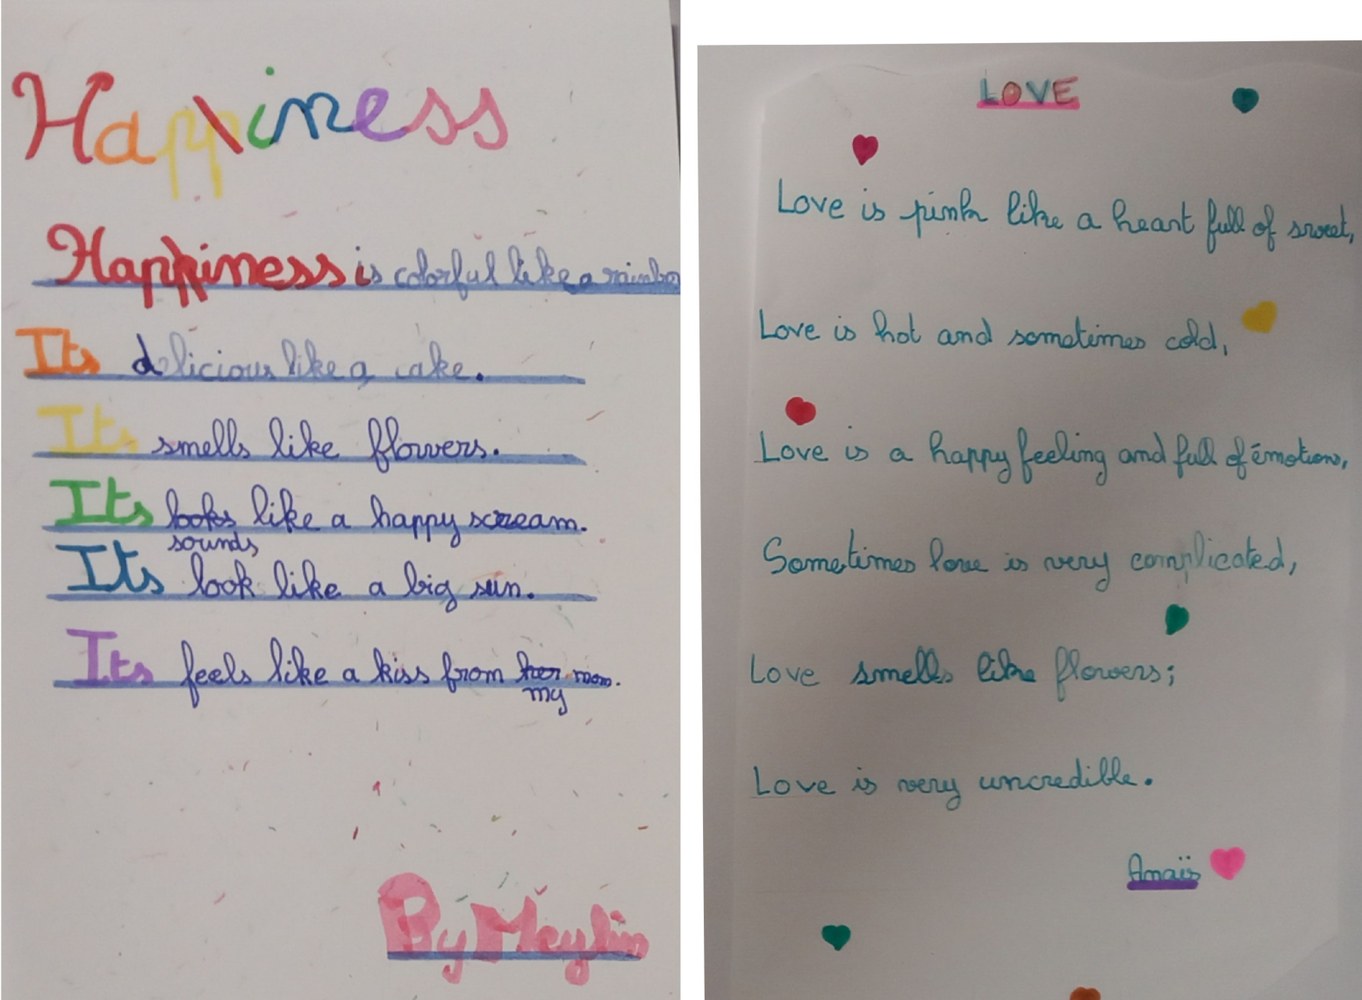 Happiness
Happiness is colorful like a rainbow
Its delicious like a cake.
Its smells like flowers.
Its looks like a happy scream.
sounds
Its look like a big sun.
Its feels like a kiss from her mom.
my
By Meylin
LOVE
Love is pink like a heart full of sweet,
Love is hot and sometimes cold,
Love is a happy feeling and full of émotions,
Sometimes love is very complicated,
Love smells like flowers;
Love is very uncredible.
Anaïs